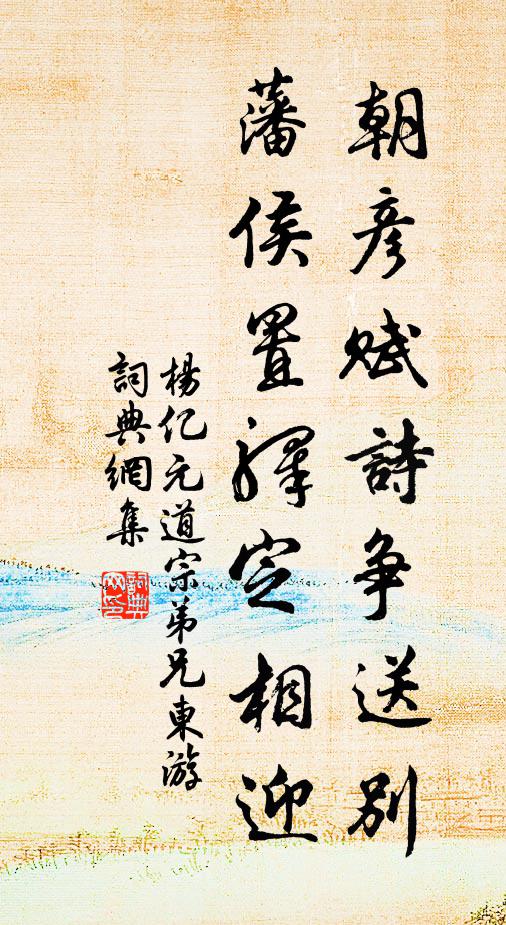 朝彦赋詩争送别
藩侯置驛定相迎
楊亿元道宗弟兄東游
詞典網集